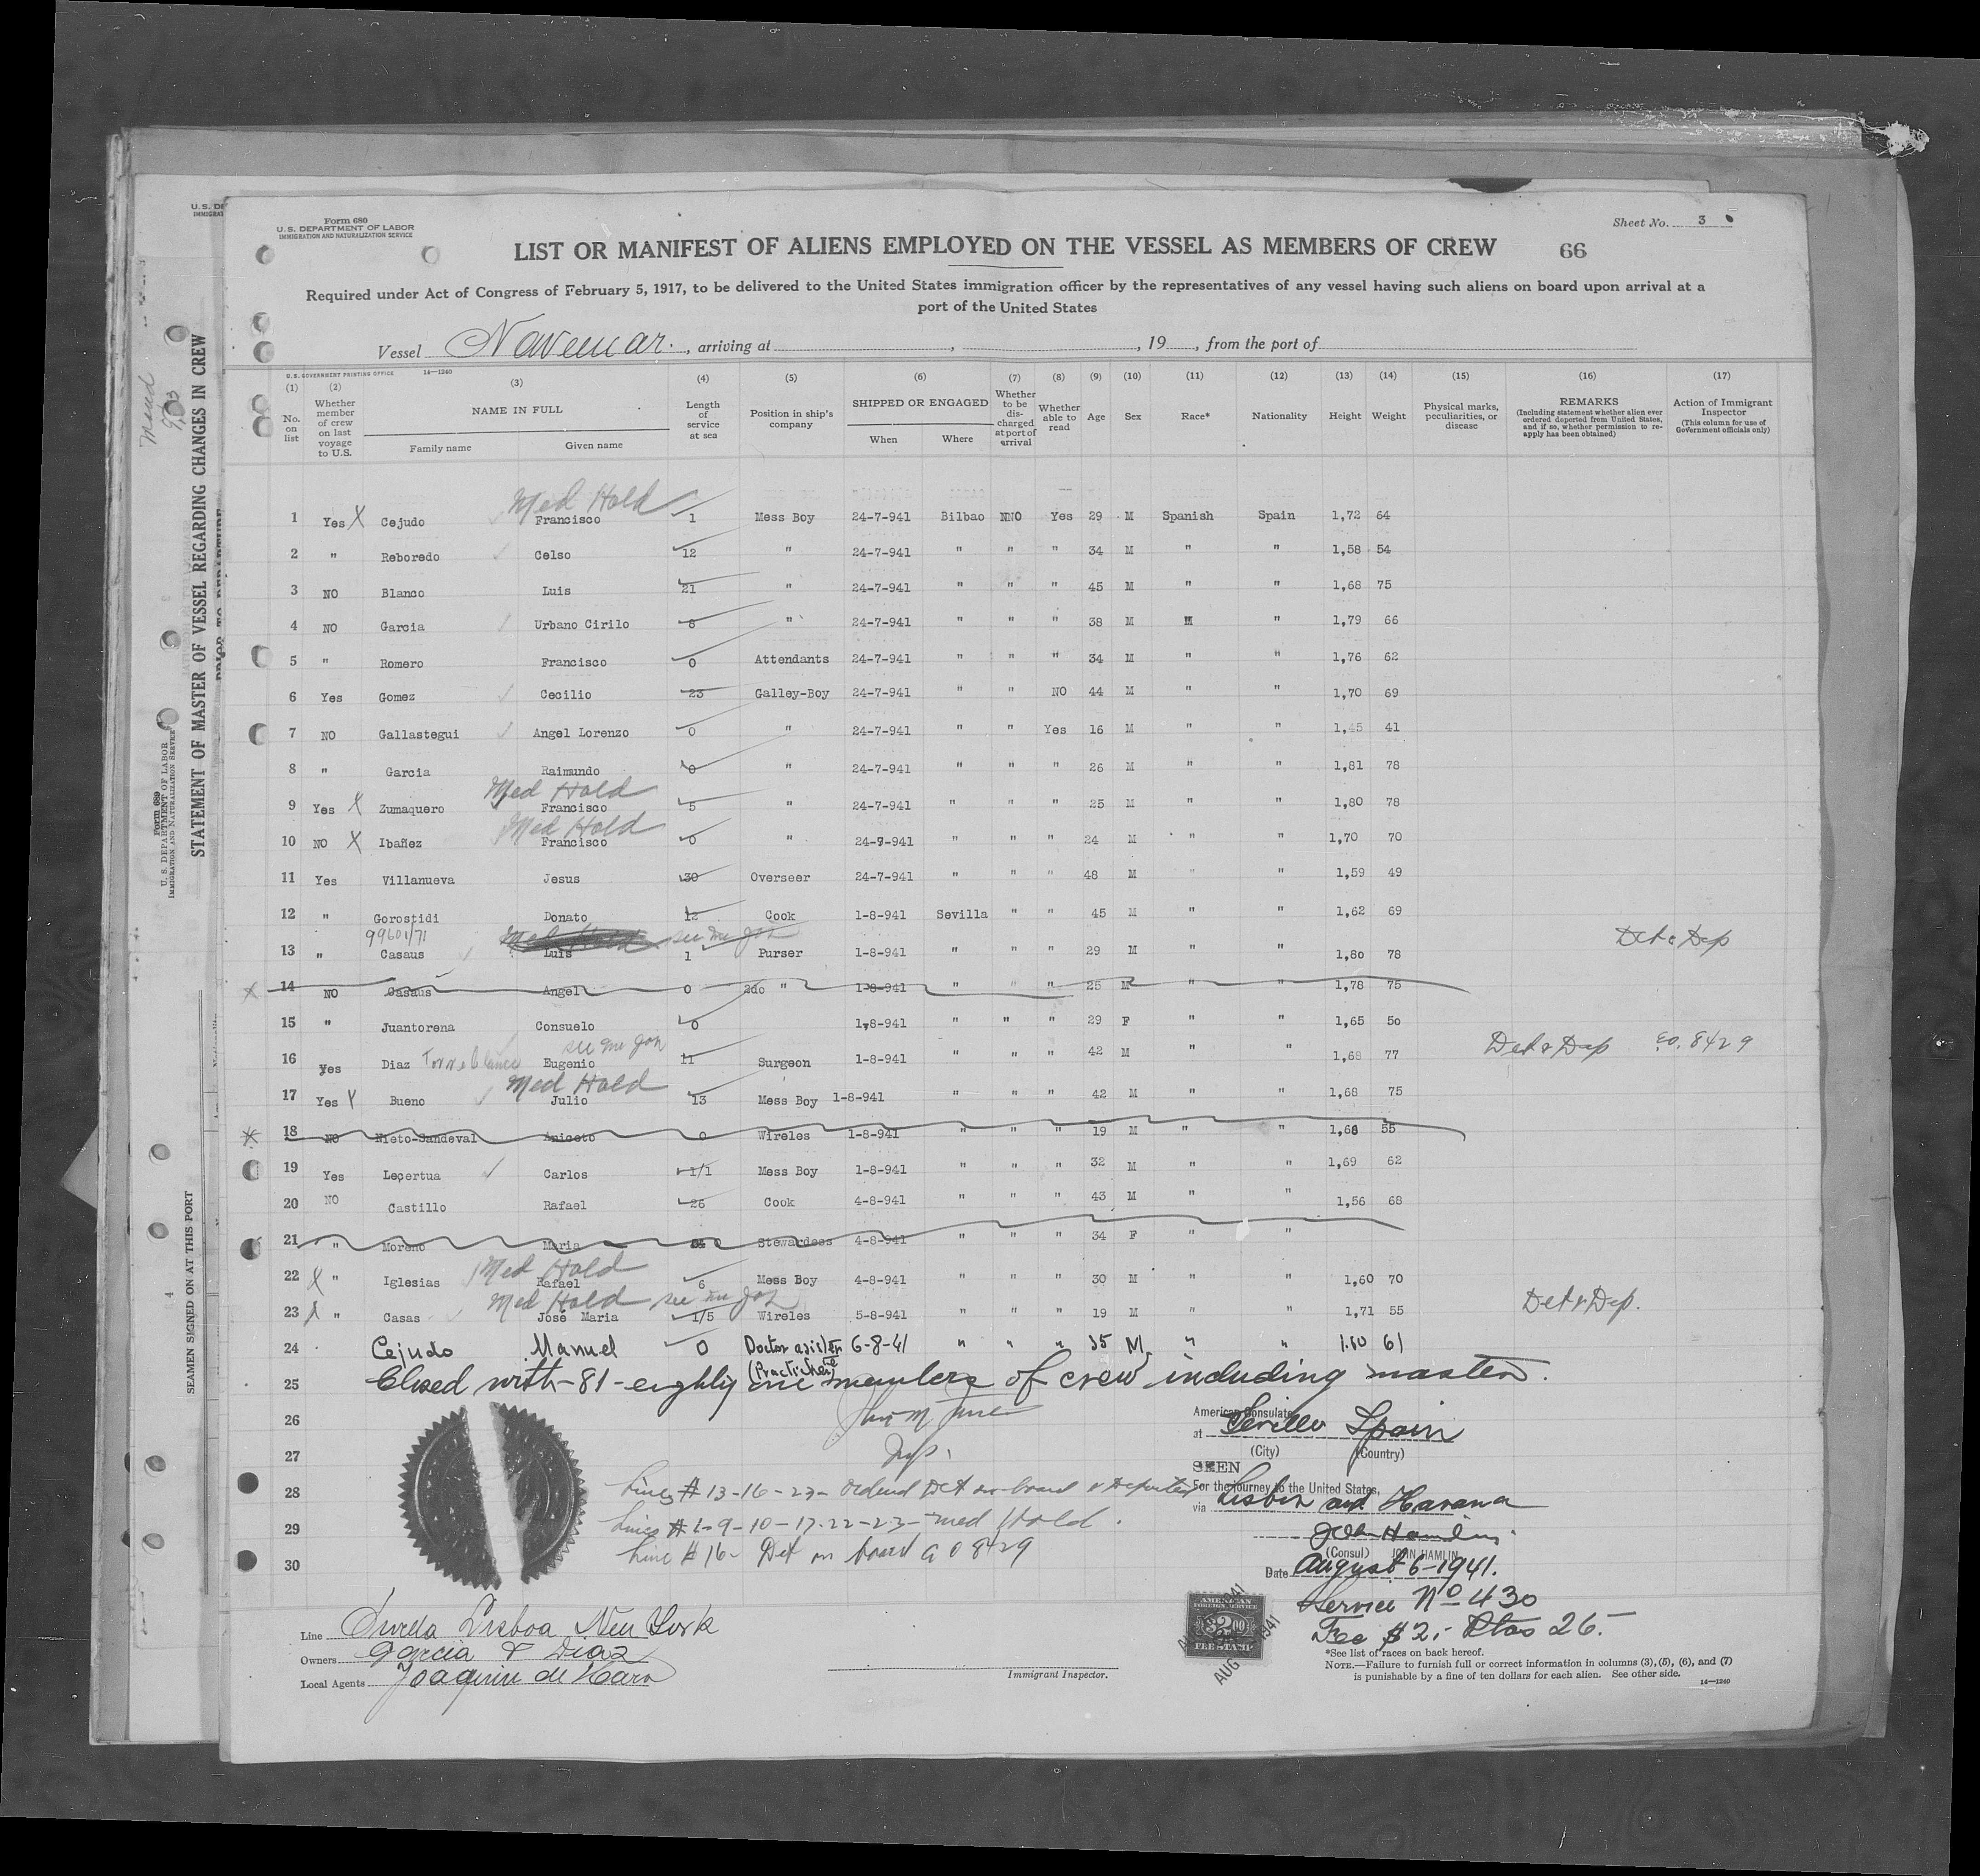 Form 680
U.S. DEPARTMENT OF LABOR
IMMIGRATION AND NATURALIZATION SERVICE
Sheet No. 3
LIST OR MANIFEST OF ALIENS EMPLOYED ON THE VESSEL AS MEMBERS OF CREW 66
Required under Act of Congress of February 5, 1917, to be delivered to the United States immigration officer by the representatives of any vessel having such aliens on board upon arrival at a
port of the United States
Vessel Navemar, arriving at , , 19 , from the port of
U.S. GOVERNMENT PRINTING OFFICE 14—1240
(1) (2) (3) (4) (5) (6) (7) (8) (9) (10) (11) (12) (13) (14) (15) (16) (17)
No. on list
Whether member of crew on last voyage to U.S.
NAME IN FULL
Family name Given name
Length of service at sea
Position in ship's company
SHIPPED OR ENGAGED
When Where
Whether to be discharged at port of arrival
Whether able to read
Age Sex Race* Nationality Height Weight
Physical marks, peculiarities, or disease
REMARKS
(Including statement whether alien ever ordered deported from United States, and if so, whether permission to reapply has been obtained)
Action of Immigrant Inspector
(This column for use of Government officials only)
Med Hold
1 Yes X Cejudo Francisco 1 Mess Boy 24-7-941 Bilbao NNO Yes 29 M Spanish Spain 1,72 64
2 " Reboredo Celso 12 " 24-7-941 " " " 34 M " " 1,58 54
3 NO Blanco Luis 21 " 24-7-941 " " " 45 M " " 1,68 75
4 NO Garcia Urbano Cirilo 8 " 24-7-941 " " " 38 M " " 1,79 66
5 " Romero Francisco 0 Attendants 24-7-941 " " " 34 M " " 1,76 62
6 Yes Gomez Cecilio 23 Galley-Boy 24-7-941 " " NO 44 M " " 1,70 69
7 NO Gallastegui Angel Lorenzo 0 " 24-7-941 " " Yes 16 M " " 1,45 41
8 " Garcia Raimundo 0 " 24-7-941 " " " 26 M " " 1,81 78
Med Hold
9 Yes X Zumaquero Francisco 5 " 24-7-941 " " " 25 M " " 1,80 78
Med Hold
10 NO X Ibañez Francisco 0 " 24-7-941 " " " 24 M " " 1,70 70
11 Yes Villanueva Jesus 30 Overseer 24-7-941 " " " 48 M " " 1,59 49
12 " Gorostidi Donato 12 Cook 1-8-941 Sevilla " " 45 M " " 1,62 69
99601/71 Med Hold
13 " Casaus Luis 1 Purser 1-8-941 " " " 29 M " " 1,80 78 Det & Dep
X 14 NO Casaus Angel 0 2do " 1-8-941 " " " 25 M " " 1,78 75
15 " Juantorena Consuelo 0 1-8-941 " " " 29 F " " 1,65 50
16 Yes Diaz Torreblanca Eugenio 11 Surgeon 1-8-941 " " " 42 M " " 1,68 77 Det & Dep E.O. 8429
Med Hold
17 Yes X Bueno Julio 13 Mess Boy 1-8-941 " " " 42 M " " 1,68 75
18 NO Nieto-Sandeval Aniceto 0 Wireles 1-8-941 " " " 19 M " " 1,68 55
19 Yes Leçertua Carlos 1/1 Mess Boy 1-8-941 " " " 32 M " " 1,69 62
20 NO Castillo Rafael 26 Cook 4-8-941 " " " 43 M " " 1,56 68
21 " Moreno Maria Stewardess 4-8-941 " " " 34 F " "
Med Hold
22 X " Iglesias Rafael 6 Mess Boy 4-8-941 " " " 30 M " " 1,60 70
Med Hold
23 X " Casas José Maria 1/5 Wireles 5-8-941 " " " 19 M " " 1,71 55 Det & Dep.
24 Cejudo Manuel 0 Doctor asisten (Practicante) 6-8-41 " " " 35 M. " " 1.60 61
25 Closed with -81- eighty one members of crew including master.
26
27
28 Lines # 13-16-23- Ordered Det on board & Deported
29 Lines # 1-9-10-17-22-23- Med Hold.
30 Line # 16- Det on board 8429
American Consulate
at Seville Spain
(City) (Country)
SEEN
For the journey to the United States,
via Lisbon and Havana
John Hamlin
(Consul) JOHN HAMLIN
Date August 6-1941.
Service No 430
Fee $2.- Ptas 26.-
AMERICAN
FOREIGN SERVICE
$2.00
FEE STAMP
Line Sevilla Lisboa New York
Owners Garcia & Diaz
Local Agents Joaquin de Haro
Immigrant Inspector.
*See list of races on back hereof.
NOTE.—Failure to furnish full or correct information in columns (3), (5), (6), and (7)
is punishable by a fine of ten dollars for each alien. See other side.
14—1240
STATEMENT OF MASTER OF VESSEL REGARDING CHANGES IN CREW
Form 689
U. S. DEPARTMENT OF LABOR
IMMIGRATION AND NATURALIZATION SERVICE
SEAMEN SIGNED ON AT THIS PORT